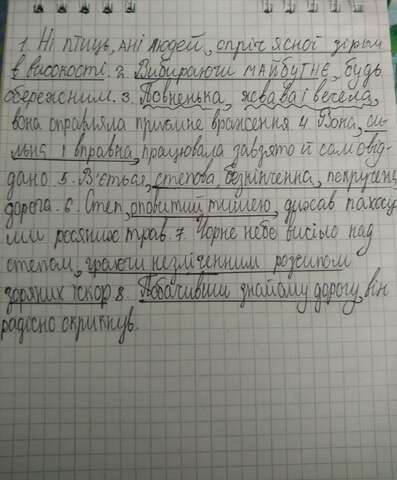 1. Ні птиць, ані людей, опріч ясної зірки
в високості. 2. Вибираючи МАЙБУТНЄ, будь
обережним. 3. Повненька, жвава і весела,
вона справляла приємне враження 4. Вона, си-
льна і вправна, працювала завзято й самовід-
дано. 5. В'ється, степова, безкінченна, покручена
дорога. 6. Степ, оповитий тишею, дихав пахоща-
ми росяних трав. 7. Чорне небо висіло над
степом, граючи незліченним розсипом
зоряних іскор 8. Побачивши знайому дорогу, він
радісно скрикнув.